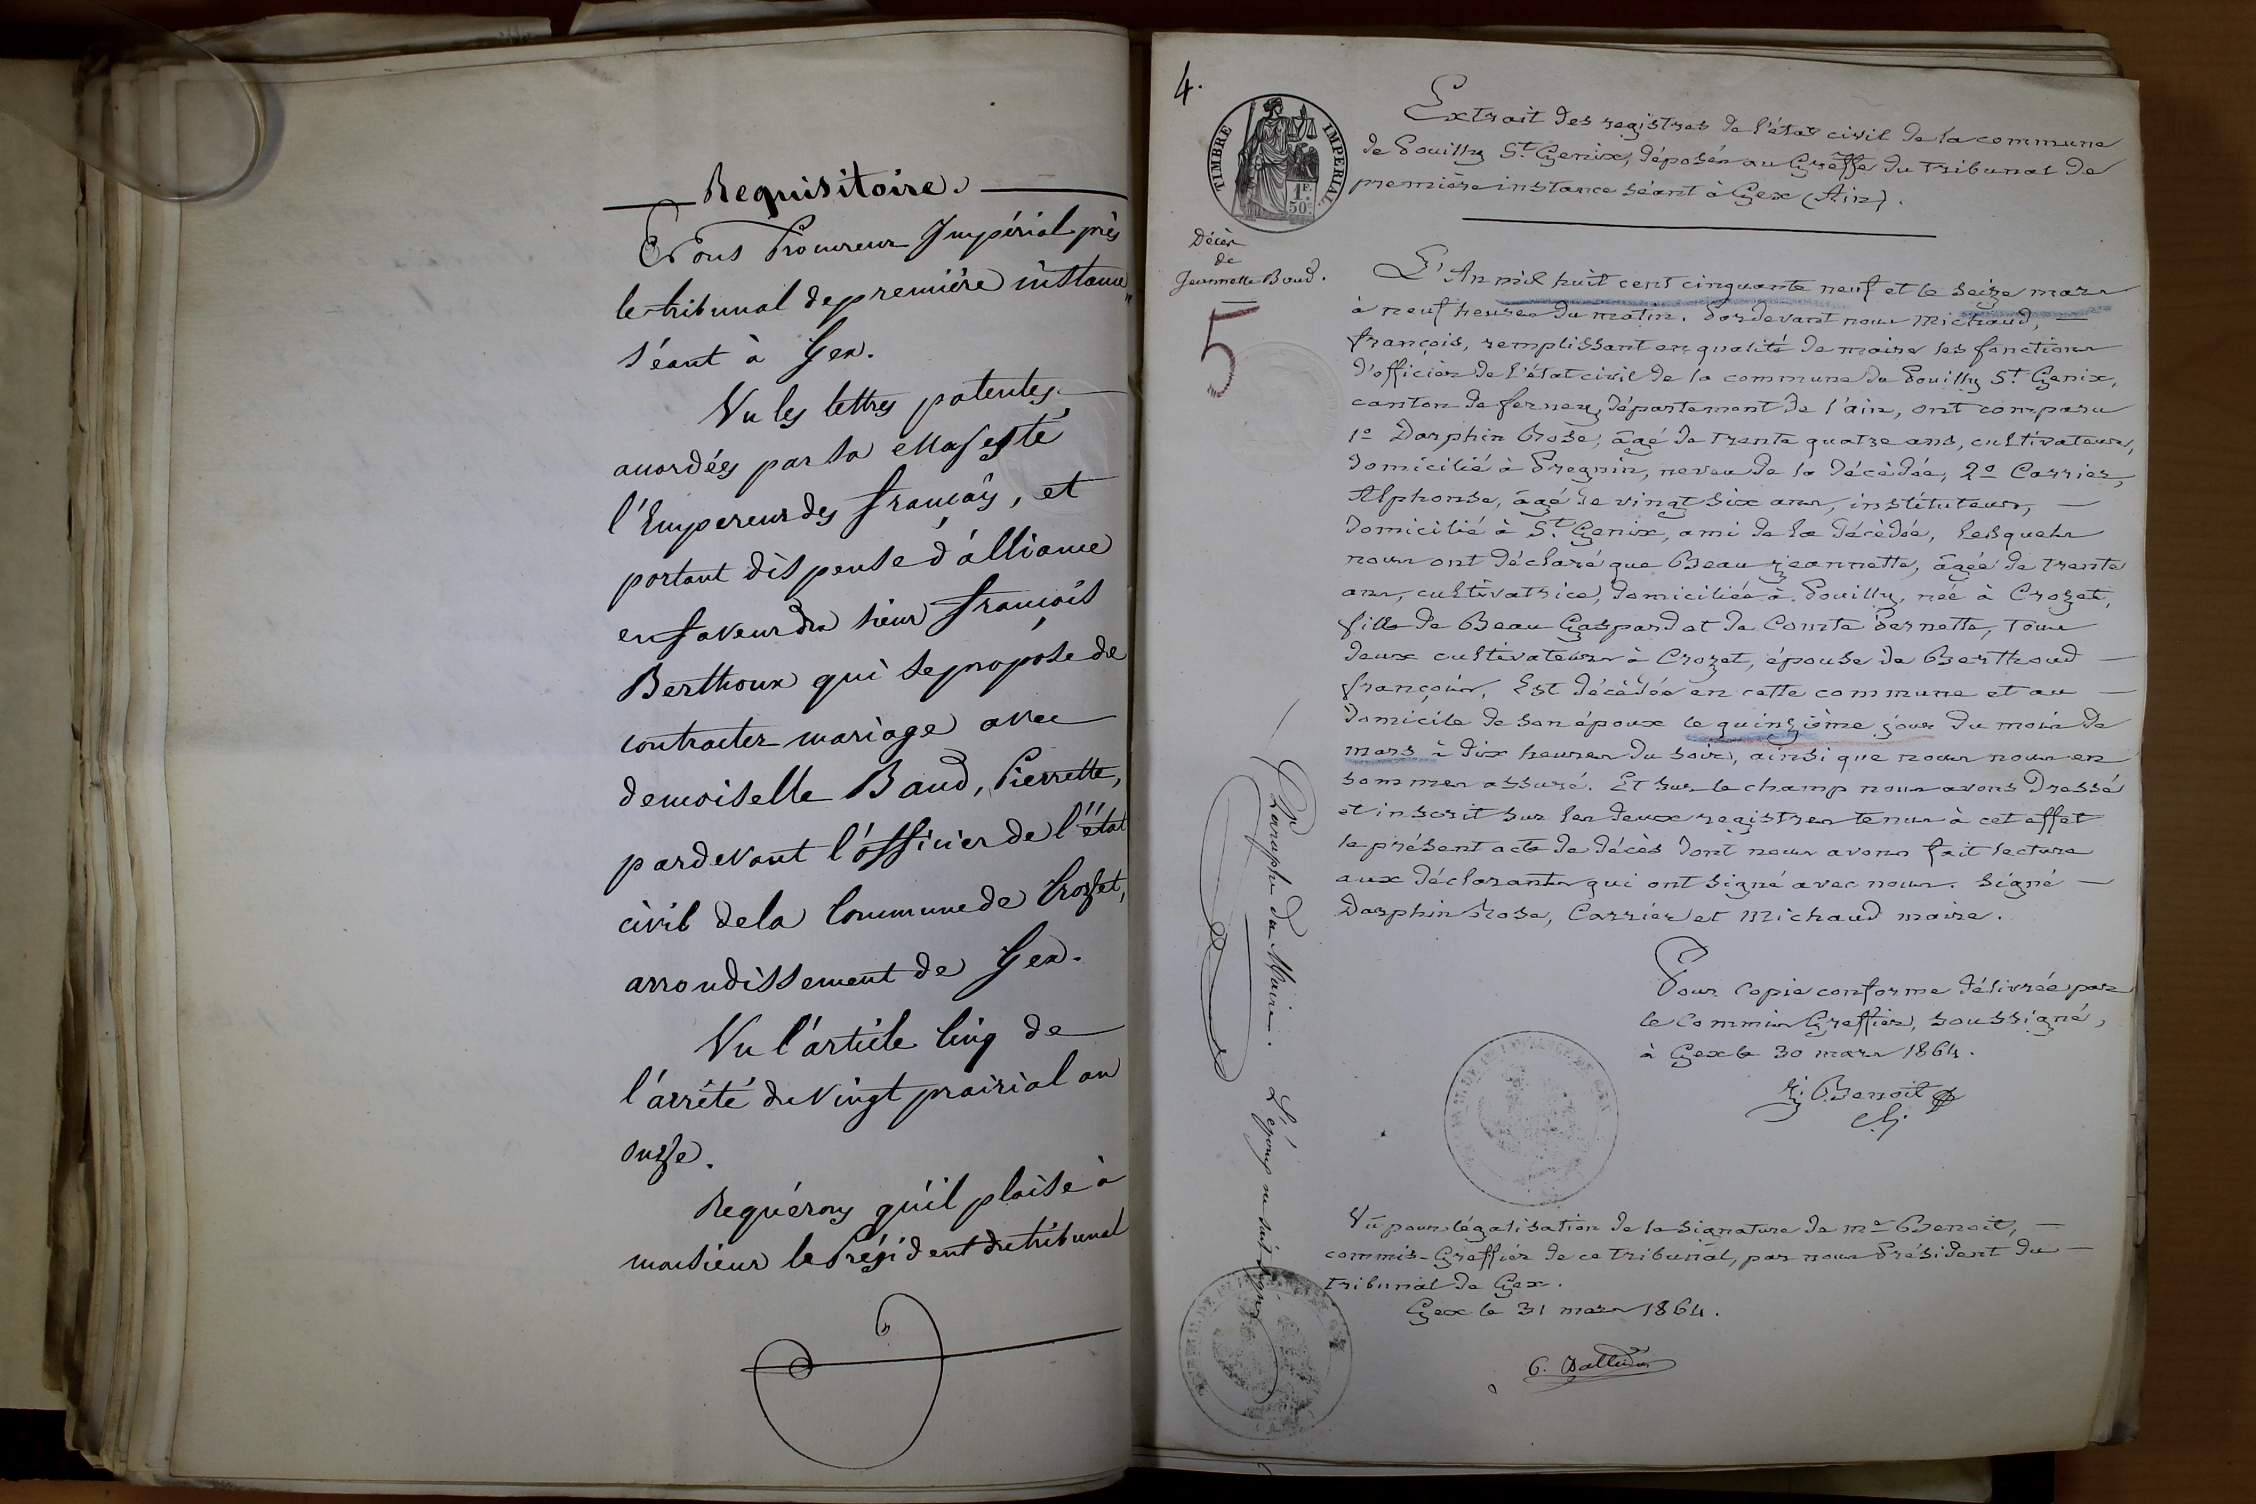 Requisitoire.
Nous Procureur Impérial près
le tribunal de première instance
séant à Gex.
Vu les lettres patentes
accordées par sa Majesté
l'Empereur des français, et
portant dispense d'alliance
en faveur du sieur françois
Berthoux qui se propose de
contracter mariage avec
demoiselle Baud, Pierrette,
pardevant l'officier de l'état
civil de la Commune de Crozet,
arrondissement de Gex.
Vu l'article Cinq de
l'arrêté du vingt prairial an
onze.
Requérons qu'il plaise à
monsieur le Président du tribunal
4.
TIMBRE IMPERIAL
1 F. 50 c.
Extrait des registres de l'état civil de la commune
de Pouilly St Genix, déposés au Greffe du tribunal de
première instance séant à Gex (Ain).
Décès
de
Jeannette Baud.
5
L'An mil huit cent cinquante neuf et le seize mars
à neuf heures du matin. Pardevant nous Michaud,
françois, remplissant en qualité de maire les fonctions
d'officier de l'état civil de la commune de Pouilly St Genix,
canton de ferney, département de l'ain, ont comparu
1o Darphin Rose, âgé de trente quatre ans, cultivateur,
domicilié à Pregnin, neveu de la décèdée, 2o Carrier,
Alphonse, âgé de vingt six ans, instituteur,
domicilié à St Genix, ami de la décèdée, lesquels
nous ont déclaré que Beau jeannette, âgée de trente
ans, cultivatrice, domiciliée à Pouilly, née à Crozet,
fille de Beau Gaspard et de Comte Pernette, tous
deux cultivateurs à Crozet, épouse de Berthoud
françois, Est décèdée en cette commune et au
domicile de son époux le quinzième jour du mois de
mars à dix heures du soir, ainsi que nous nous en
sommes assuré. Et sur le champ nous avons dressé
et inscrit sur les deux registres tenus à cet effet
le présent acte de décès dont nous avons fait lecture
aux déclarants qui ont signé avec nous. signé
Darphin Rose, Carrier et Michaud maire.
Pour copie conforme délivrée par
le Commis Greffier, soussigné,
à Gex le 30 mars 1864.
Benoit
Vu pour légalisation de la signature de mr Benoit,
commis-Greffier de ce tribunal, par nous Président du
tribunal de Gex.
Gex le 31 mars 1864.
Paraphe du Maire. L'époux ne sait signer